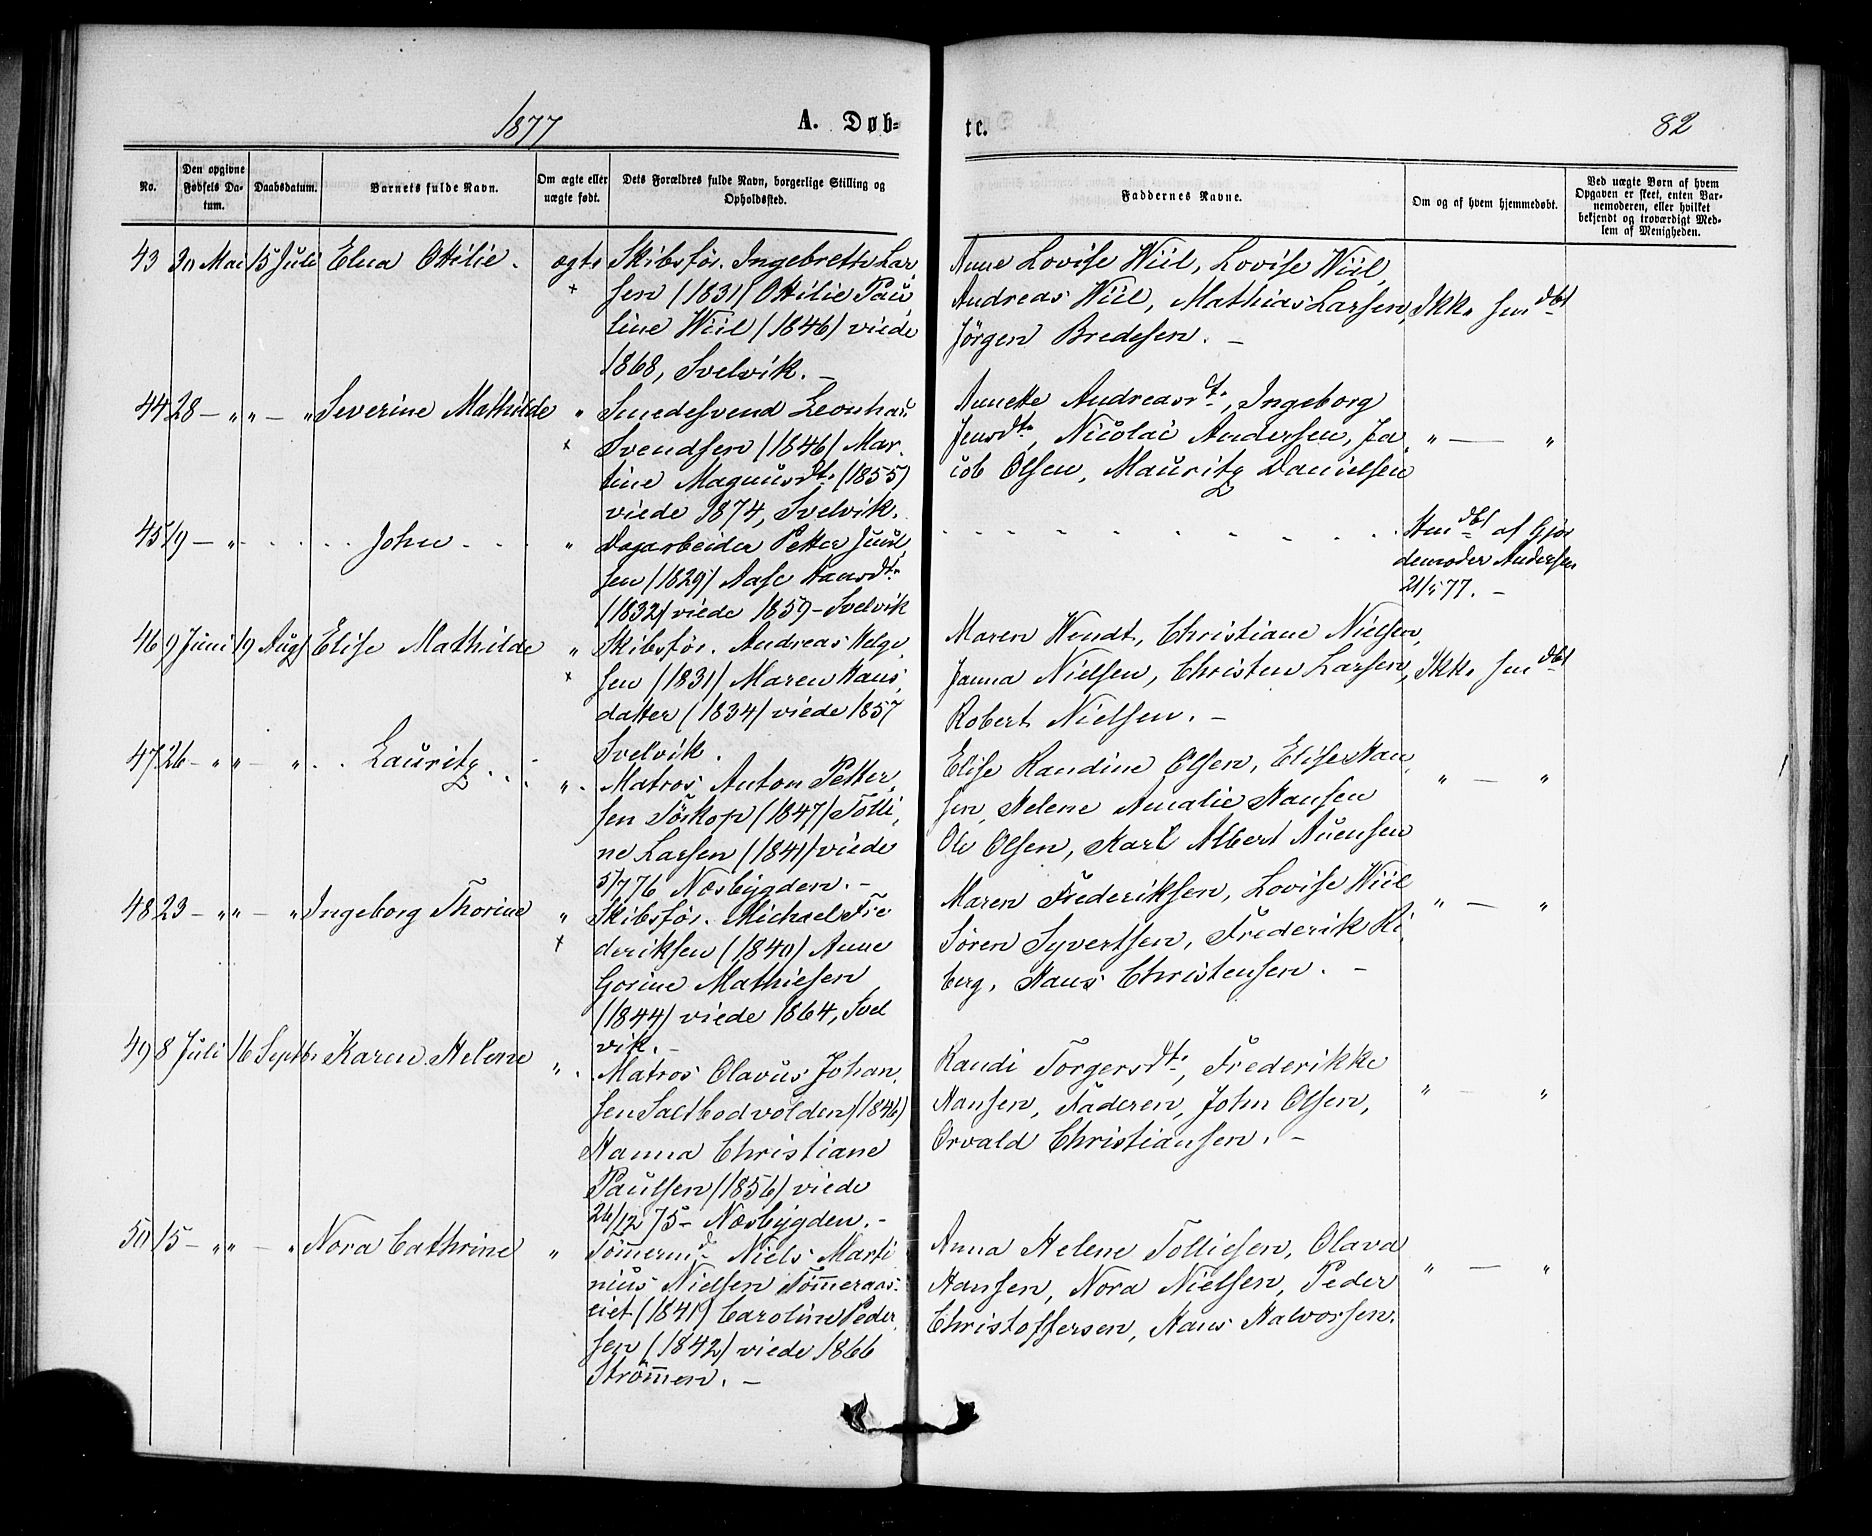 1877
A. Døb=
te.
82
No.
Den opgivne Fødsels Da-tum.
Daabsdatum.
Barnets fulde Navn.
Om ægte eller uægte født.
Dets Forældres fulde Navn, borgerlige Stilling og Opholdssted.
Faddernes Navne.
Om og af hvem hjemmedøbt.
Ved uægte Børn af hvem Opgaven er skeet, enten Bar-nemoderen, eller hvilket bekjendt og troværdigt Med-lem af Menigheden.
43 30 Mai 15 Juli Elna Ottilie. ægte
×
Skibsfør. Ingebrett Lar
sen (1831) Ottilie Pau
line Wiil (1846) viede
1868, Svelvik. –
Anne Lovise Wiil, Lovise Wiil,
Andreas Wiil, Mathias Larsen,
Jörgen Bredesen. –
Ikke hjmdbt
44 28 – " " – " Severine Mathilde "
×
Smedesvend Leonhar
Svendsen (1846) Mar-
tine Magnusdtr (1855)
viede 1874, Svelvik.
Annette Andreasdt., Ingeborg
Jensdtr, Nicolai Andersen, Ja
cob Olsen, Mauritz Danielsen
" – "
45 19 – " . . . . John . . . "
Dagarbeider Petter Juul
sen (1829) Aase Hansdtr
(1832) viede 1859 – Svelvik
. . . . . . . . . .
Hmdbt af Gjor
demoder Andersen
21/5 77. –
46 9 Juni 19 Aug Elise Mathilde "
×
Skibsför. Andreas Helge,
sen (1831) Maren Hans,
datter (1834) viede 1857
Svelvik.
Maren Wendt, Christiane Nielsen,
Janna Nielsen, Christen Larsen,
Robert Nielsen. –
Ikke hjmdbt
47 26 – " " – " . . Lauritz . . . "
Matros Anton Petter,
sen Törkop (1847) Tolli,
ne Larsen (1841) viede
5/7 76 Næsbygden. –
Elise Randine Olsen, Elise Han,
sen, Helene Amalie Hansen
Ole Olsen, Karl Albert Auensen
" – "
48 23 – " " – " Ingeborg Thorine "
×
Skibsför. Michael Fre
deriksen (1840) Anne
Gorine Mathiesen
(1844) viede 1864, Svel
vik. –
Maren Frederiksen, Lovise Wiil
Sören Syvertsen, Frederik Ki,
berg, Hans Christensen. –
" – "
49 8 Juli 16 Septbr Karen Helene "
Matros Olavus Johan,
sen Saltbodvolden (1846)
Hanna Christiane
Paulsen (1856) viede
26/12 75 – Næsbygden. –
Randi Torgersdt., Frederikke
Hansen, Faderen, John Olsen,
Orvald Christiansen. –
" – "
50 15 – " " – " Nora Cathrine "
Tömermd Niels Marti
nius Nielsen Tömeraas-
eiet (1841) Caroline Peder
sen (1842) viede 1866
Strömen. –
Anna Helene Tolliesen, Olava
Hansen, Nora Nielsen, Peder
Christoffersen, Hans Halvorsen.
" – "